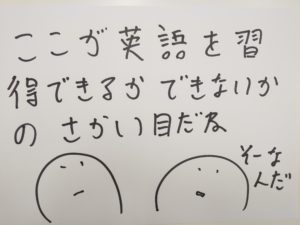 ここが英語を習
得できるか できないか
の さかい目だな
そーな
んだ